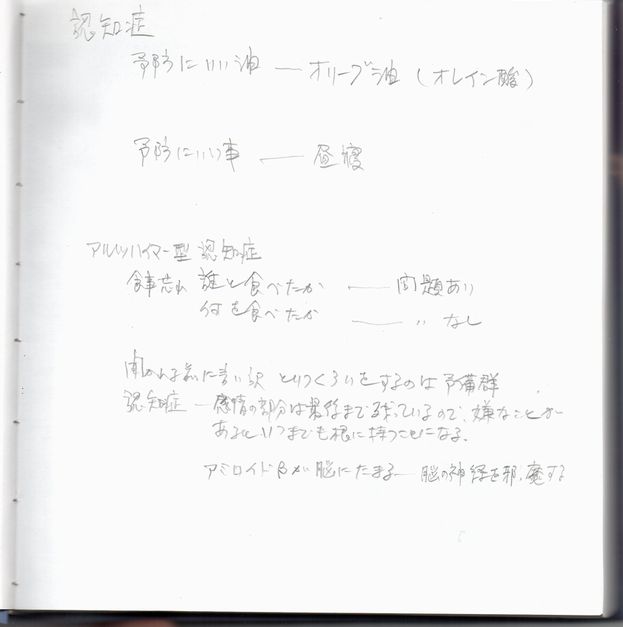 認知症
予防にいい油 ― オリーブ油 (オレイン酸)
予防にいい事 ― 昼寝
アルツハイマー型 認知症
食事忘れ 誰と食べたか ― 問題あり
何を食べたか ― 〃 なし
聞かれる前に言い訳 とりつくろいをするのは予備群.
認知症 ― 感情の部分は最後まで残っているので、嫌なことが
あるといつまでも根に持つことになる.
アミロイドβが脳にたまる ― 脳の神経を邪魔する